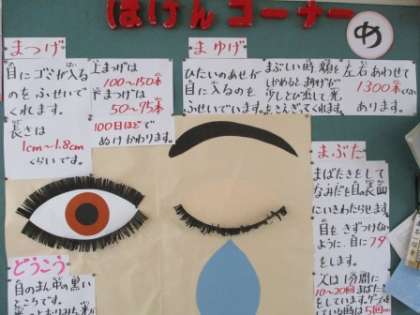 ほけんコーナー
め
まつげ
目にゴミが入る
のをふせいで
くれます。
長さは
1cm〜1.8cm
くらいです。
上まつげは
100〜150本
下まつげは
50〜75本
100日ほどで
ぬけかわります。
まゆげ
ひたいのあせが
目に入るのを
ふせいでいます。
まぶしい時、顔を
しかめると、まゆげが
少しとび出して光
をさえぎってくれます。
左右あわせて
1300本くらい
あります。
まぶた
まばたきをして
なみだを目の表面
にいきわたらせます。
目をきずつけない
ように、目にフタ
をします。
人は1分間に
10〜20回まばたき
をしています。ゲームを
している時は5回
どうこう
目のまん中の黒い
ところです。